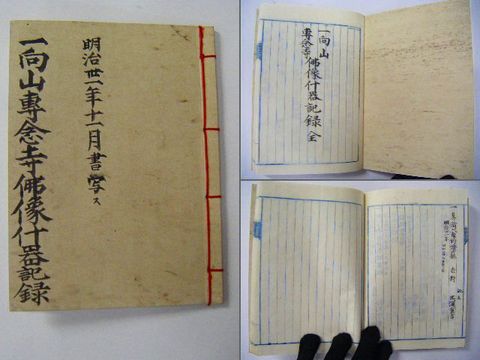 明治丗一年十一月書写ス
一向山專念寺佛像什器記録
一向山
專念寺佛像什器記録 全